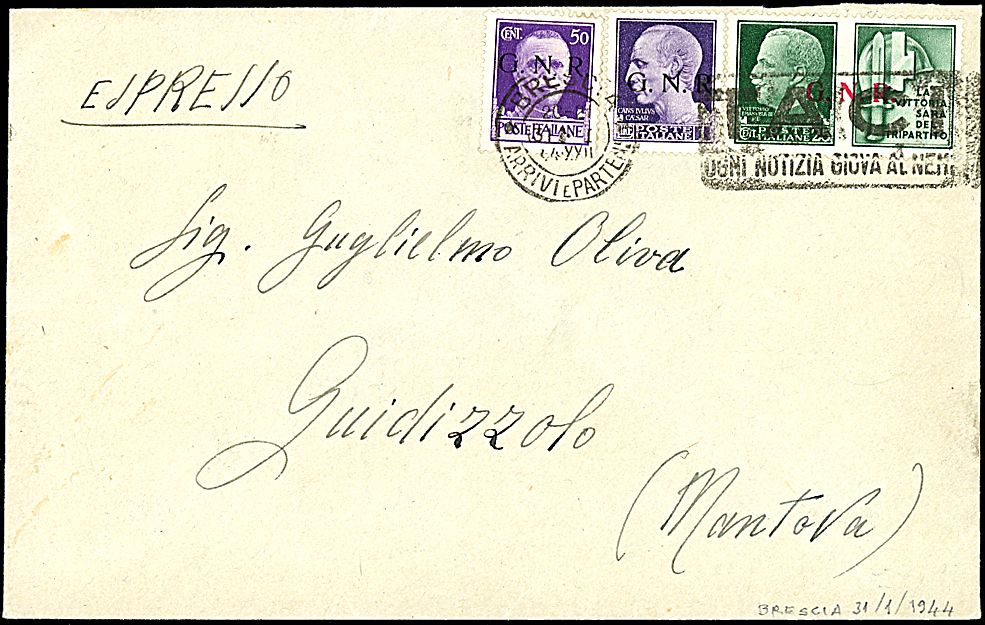 ESPRESSO
CENT. 50
G. N. R.
POSTE ITALIANE
G. N. R.
CAIVS IVLIVS
CAESAR
POSTE
ITALIANE
G. N. R.
VITTORIO
EMANUELE
POSTE
CENT ITALIANE 25
LA
VITTORIA
SARÀ
DEL
TRIPARTITO
BRESCIA
31 1
44 XXII
ARRIVI E PARTENZE
TACI
OGNI NOTIZIA GIOVA AL NEM
Sig. Guglielmo Oliva
Guidizzolo
(Mantova)
BRESCIA 31/1/1944